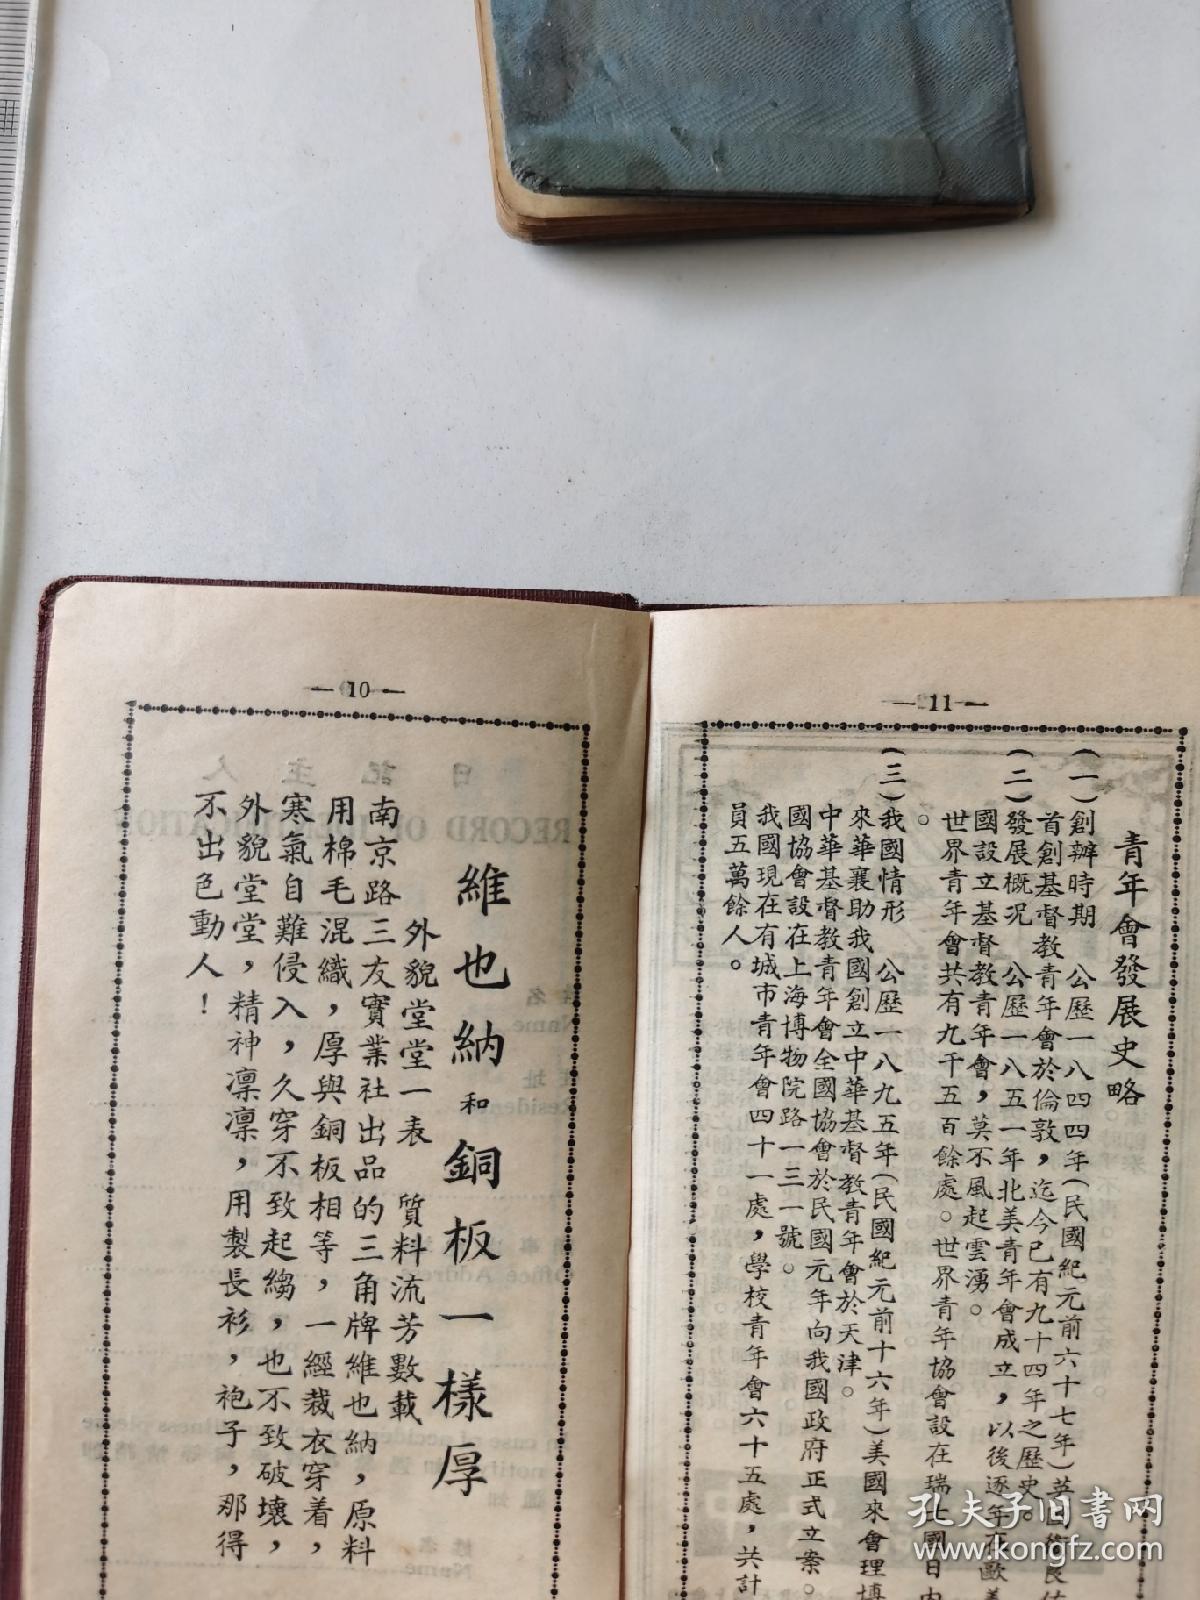 —10—
維也納和銅板一樣厚
外貌堂堂一表　質料流芳數載
南京路三友實業社出品的三角牌維也納，原料
用棉毛混織，厚與銅板相等，一經裁衣穿着，
寒氣自難侵入，久穿不致起縐，也不致破壞，
外貌堂堂，精神凜凜，用製長衫，袍子，那得
不出色動人！
—11—
青年會發展史略
(一)創辦時期　公歷一八四四年(民國紀元前六十七年)英
首創基督教青年會於倫敦，迄今已有九十四年之歷史。
(二)發展概況　公歷一八五一年北美青年會成立，以後逐年在歐美
國設立基督教青年會，莫不風起雲湧。
世界青年會共有九千五百餘處。世界青年協會設在瑞士國日內
。
(三)我國情形　公歷一八九五年(民國紀元前十六年)美國來會理博
來華襄助我國創立中華基督教青年會於天津。
中華基督教青年會全國協會於民國元年向我國政府正式立案。
國協會設在上海博物院路一三一號。
我國現在有城市青年會四十一處，學校青年會六十五處，共計
員五萬餘人。
孔夫子旧书网
www.kongfz.com